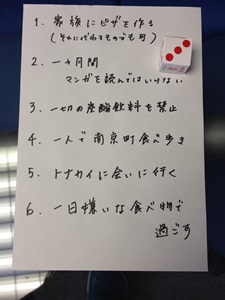 1. 家族にピザを作る
(それに代わるものでも可)
2. 一ヶ月間
マンガを読んではいけない
3. 一切の炭酸飲料を禁止
4. 一人で南京町食べ歩き
5. トナカイに会いに行く
6. 一日嫌いな食べ物で
過ごす